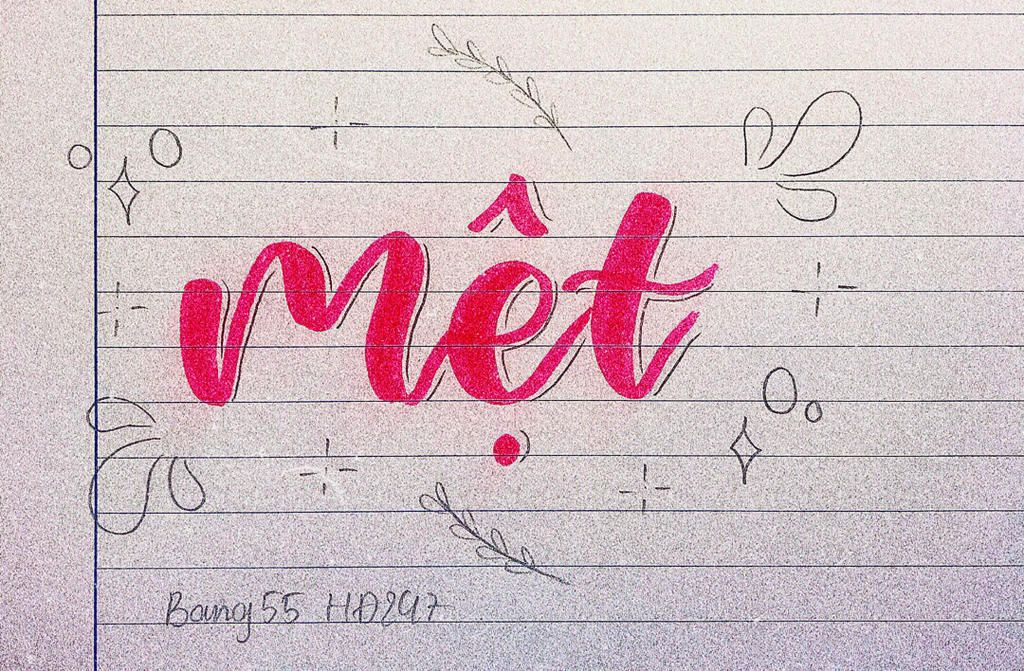 mệt
Bang55 HD297